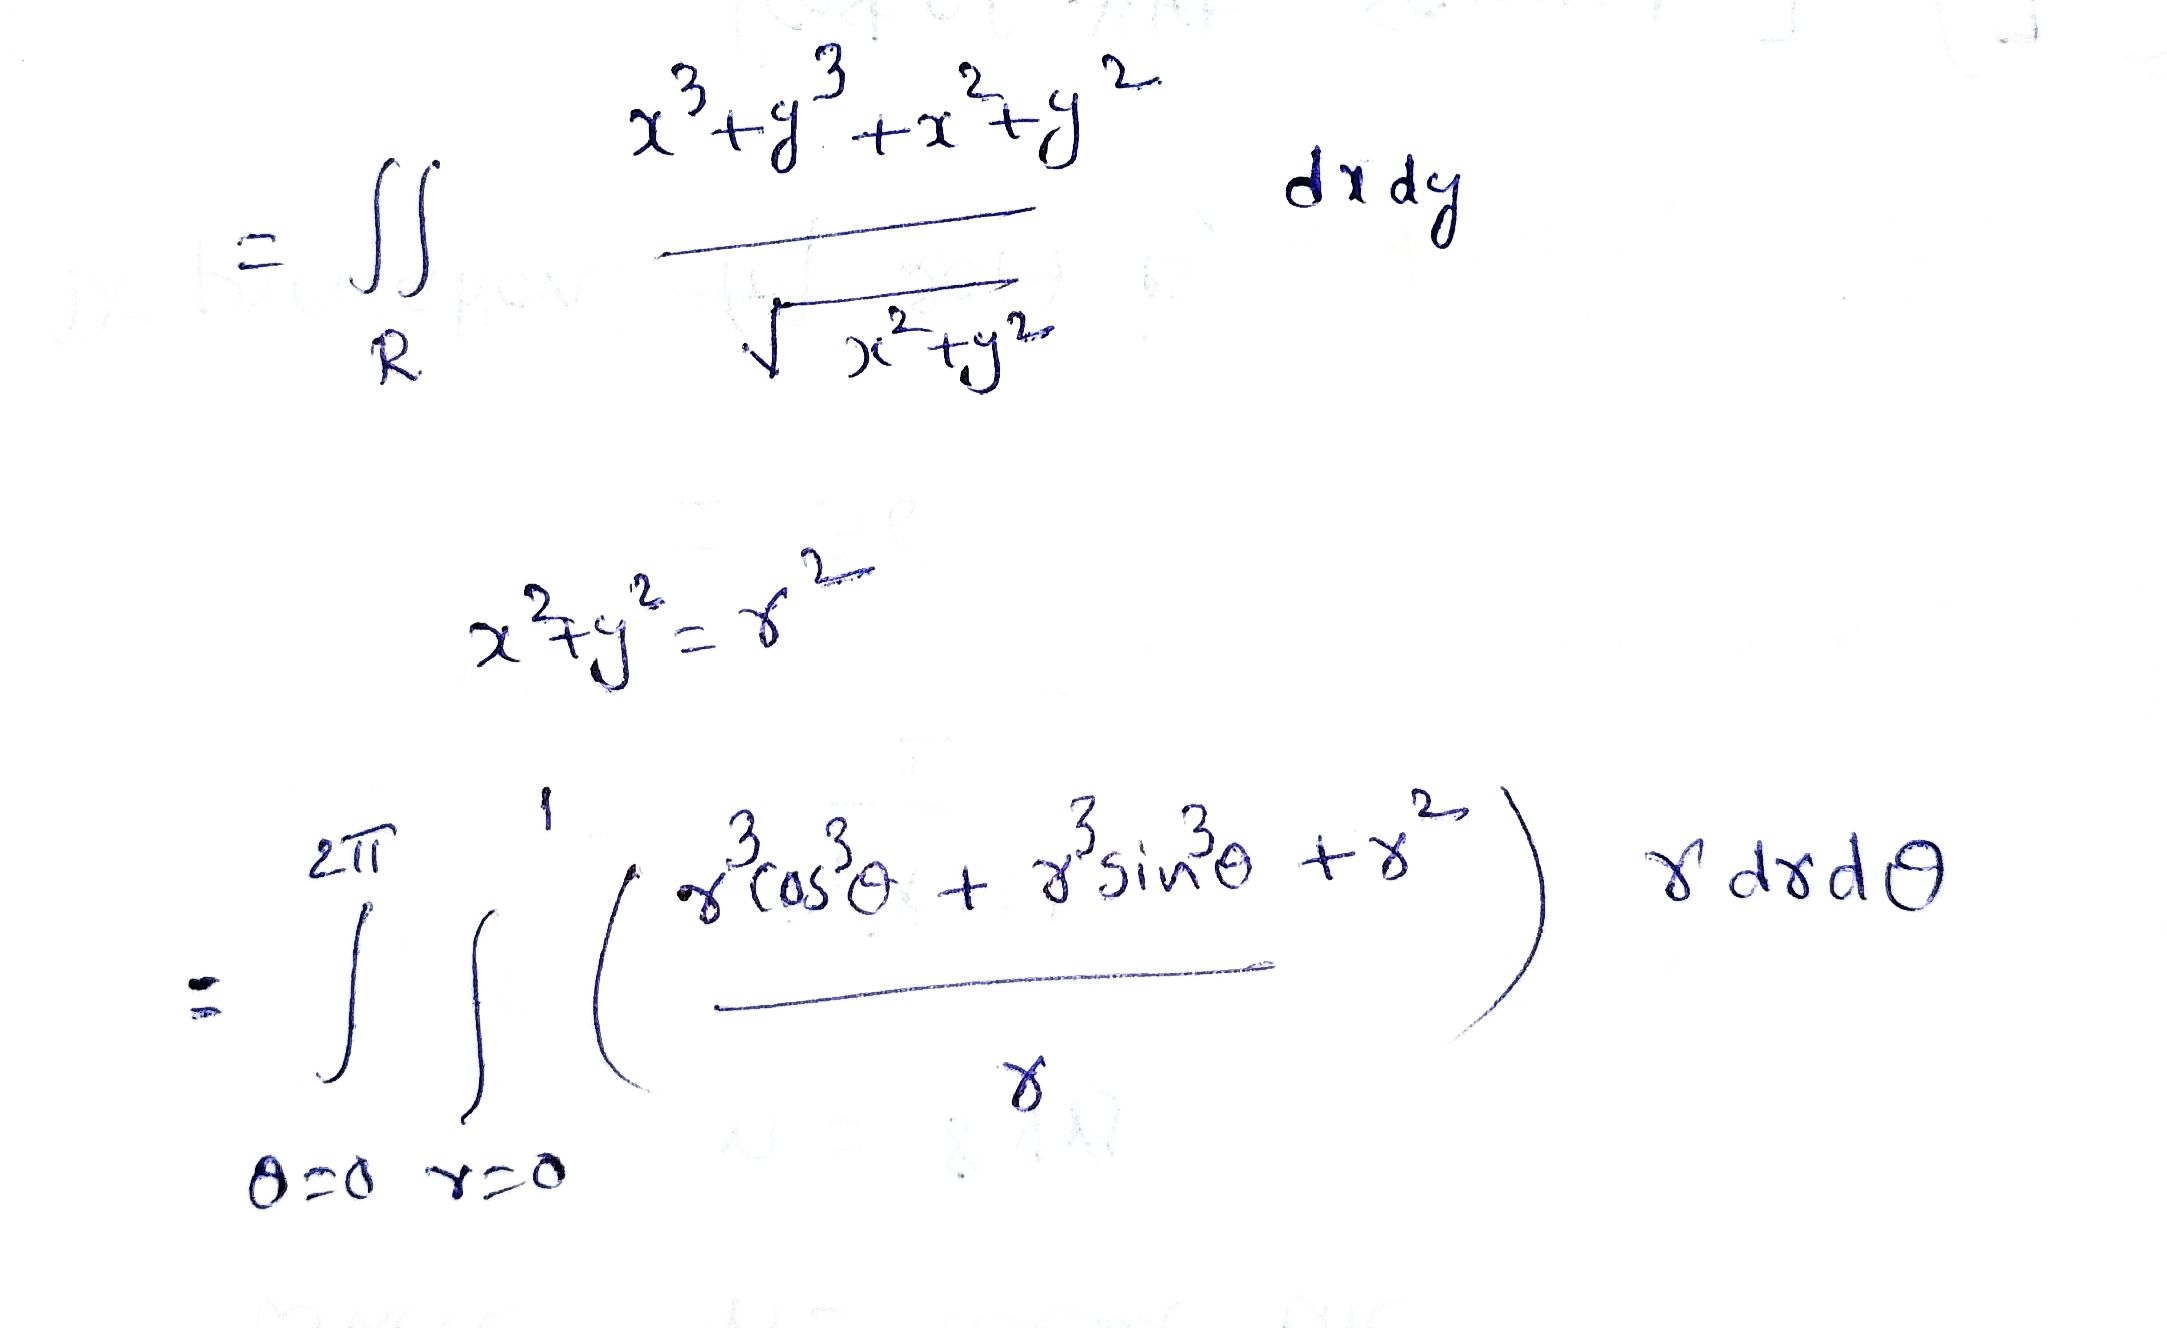 = ∬_R (x³+y³+x²+y²) / √(x²+y²) dx dy
x²+y² = r²
= ∫_{θ=0}^{2π} ∫_{r=0}^{1} ( (r³cos³θ + r³sin³θ + r²) / r ) r dr dθ